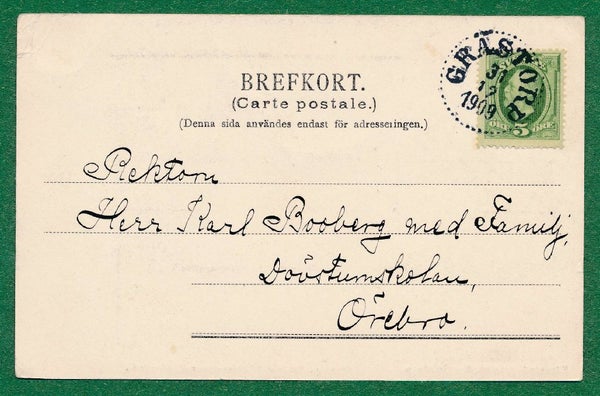 BREFKORT.
(Carte postale.)
(Denna sida användes endast för adresseringen.)
GRÄSTORP
31
12
1909
5 ÖRE
Rektorn
Herr Karl Booberg med Familj,
Dövstumskolan,
Örebro.